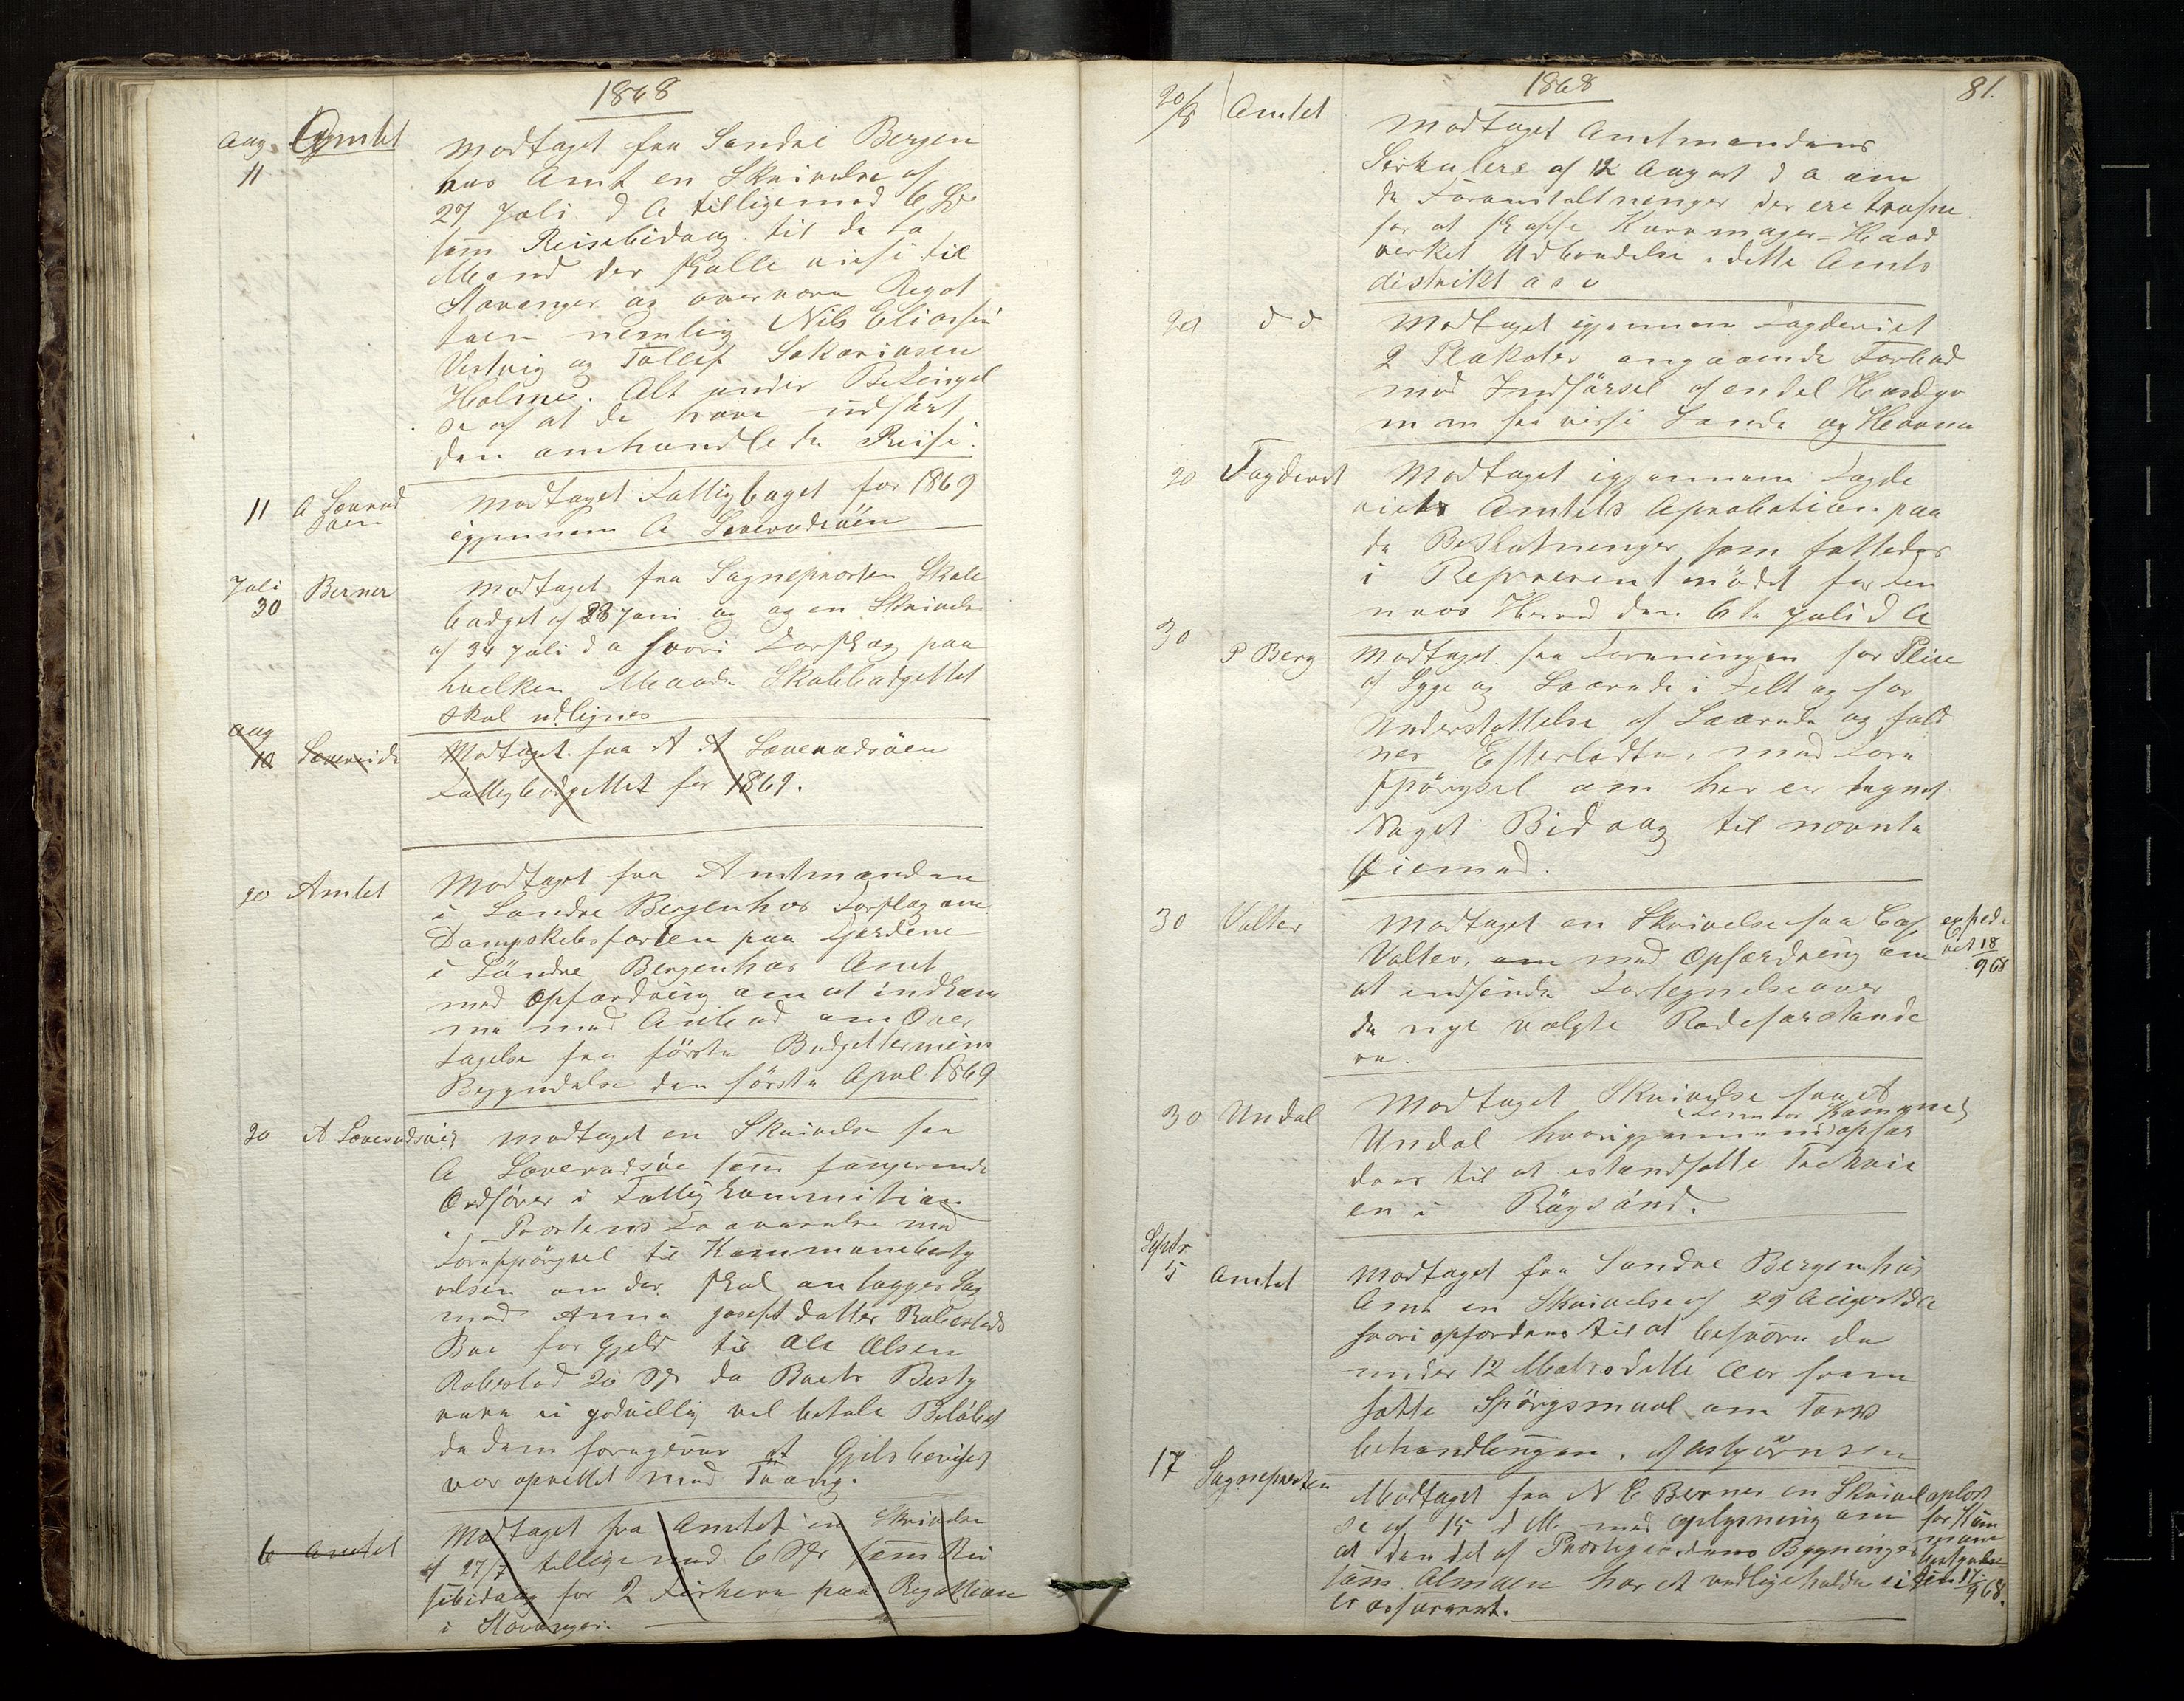 1868
Aug. Amtet Modtaget fra Söndre Bergen
11 hus Amt en Skrivelse af
27 Juli d A tilligemed 6 Sp
som Reisebidrag til de to
Mænd der skulle reise til
Stavanger og overvære Regat
taen nemlig Nils Eliassen
Vestvig og Tollef Sakariasen
Holme. Alt under Betingel
se af at de have udfört
den omhandlede Reise.
11 A Modtaget Fattigbuget for 1869
igjennem A Löverudsöen
Juli Berner Modtaget fra Sognepresten Skole
30 budget af 28 Juni og og en Skrivelse
af 34 Juli d a hvori Forslag paa
hvilken Maade Skolebudgettet
skal udlignes
Aug
10 Modtaget fra A A Löverudsöen
Fattigbudgettet for 1869.
20 Amtet Modtaget fra Amtmanden
i Söndre Bergenhus Forslag om
Dampskibsfarten paa Fjordene
i Söndre Bergenhus Amt
med Opfordring om at indkom
me med Anbud om Over
tagelse fra förste Budgettermins
Begyndelse den förste April 1869
20 A Löverudsöen Modtaget en Skrivelse fra
A Löverudsöe som fungerende
Ordförer i Fattigkommisionen
i Prestens Fraværelse med
Forespörgsel til Kommunebesty
relsen om der skal anlægges Sag
mod Anna Josefsdatter Rabestads
Boe for Gjeld til Ole Olsen
Rabestad 20 Sp da Boets Besty
rere ei godvillig vil betale Belöbet
da dem foregiver at Gjelsbeviset
var oprettet med Tvang.
6 Amtet Modtaget fra Amtet en Skrivelse
af 27/7 tillige med 6 Sp som Rei
sebidrag for 2 Fiskere paa Regattaen
i Stavanger.
1868 81.
20/8 Amtet Modtaget Amtmandens
Sirkulere af 12 August d a om
de Foranstaltninger der ere trufne
for at skaffe Kurvmager=Haand
verket Udbredelse i dette Amts
distrikt o s v
20 d d Modtaget igjennem Fogderiet
2 Plakater angaaende Forbud
mod Indförsel af endel Husdyr
m m fra visse Lande og Havne
20 Fogderiet Modtaget igjennem Fogde
riets Amtets Aprobation paa
de Beslutninger som fattedes
i Represent mödet for
Herred den 6te Juli d A
30 P Berg Modtaget fra Foreningen for Pleie
af Syge og Saarede i Felt og for
Understöttelse af Saarede og fald
nes Efterladte, med Fore
spörgsel om her er tegnet
Noget Bidrag til nævnte
Öiemed.
30 Volter Modtaget en Skrivelse fra Cap expede
Volter, om med Opfordring om ret 18
at indsende Fortegnelse over 9 68
de nye valgte Rodeforstande
re.
30 Undal Modtaget Skrivelse fra A
Undal hvorigjennem opfor
dres til at istandsætte
en i Rögsund.
Septr
5 Amtet Modtaget fra Söndre Bergenhus
Amt en Skrivelse af 29 August d A
hvori opfordres til at besvare de
under 12 Marts dette Aar frem
satte Spörgsmaal om Torsk
behandlingen, af Asbjörnsen
17 Sognepresten Modtaget fra N E Berner en Skrivel oplæst
se af 15 d M. med oplysning om for Kom
at den del af Prestegaardens Bygninger mune
som Almuen har at vedligeholde ei bestyrelse
er assureret. den 17/9 68.